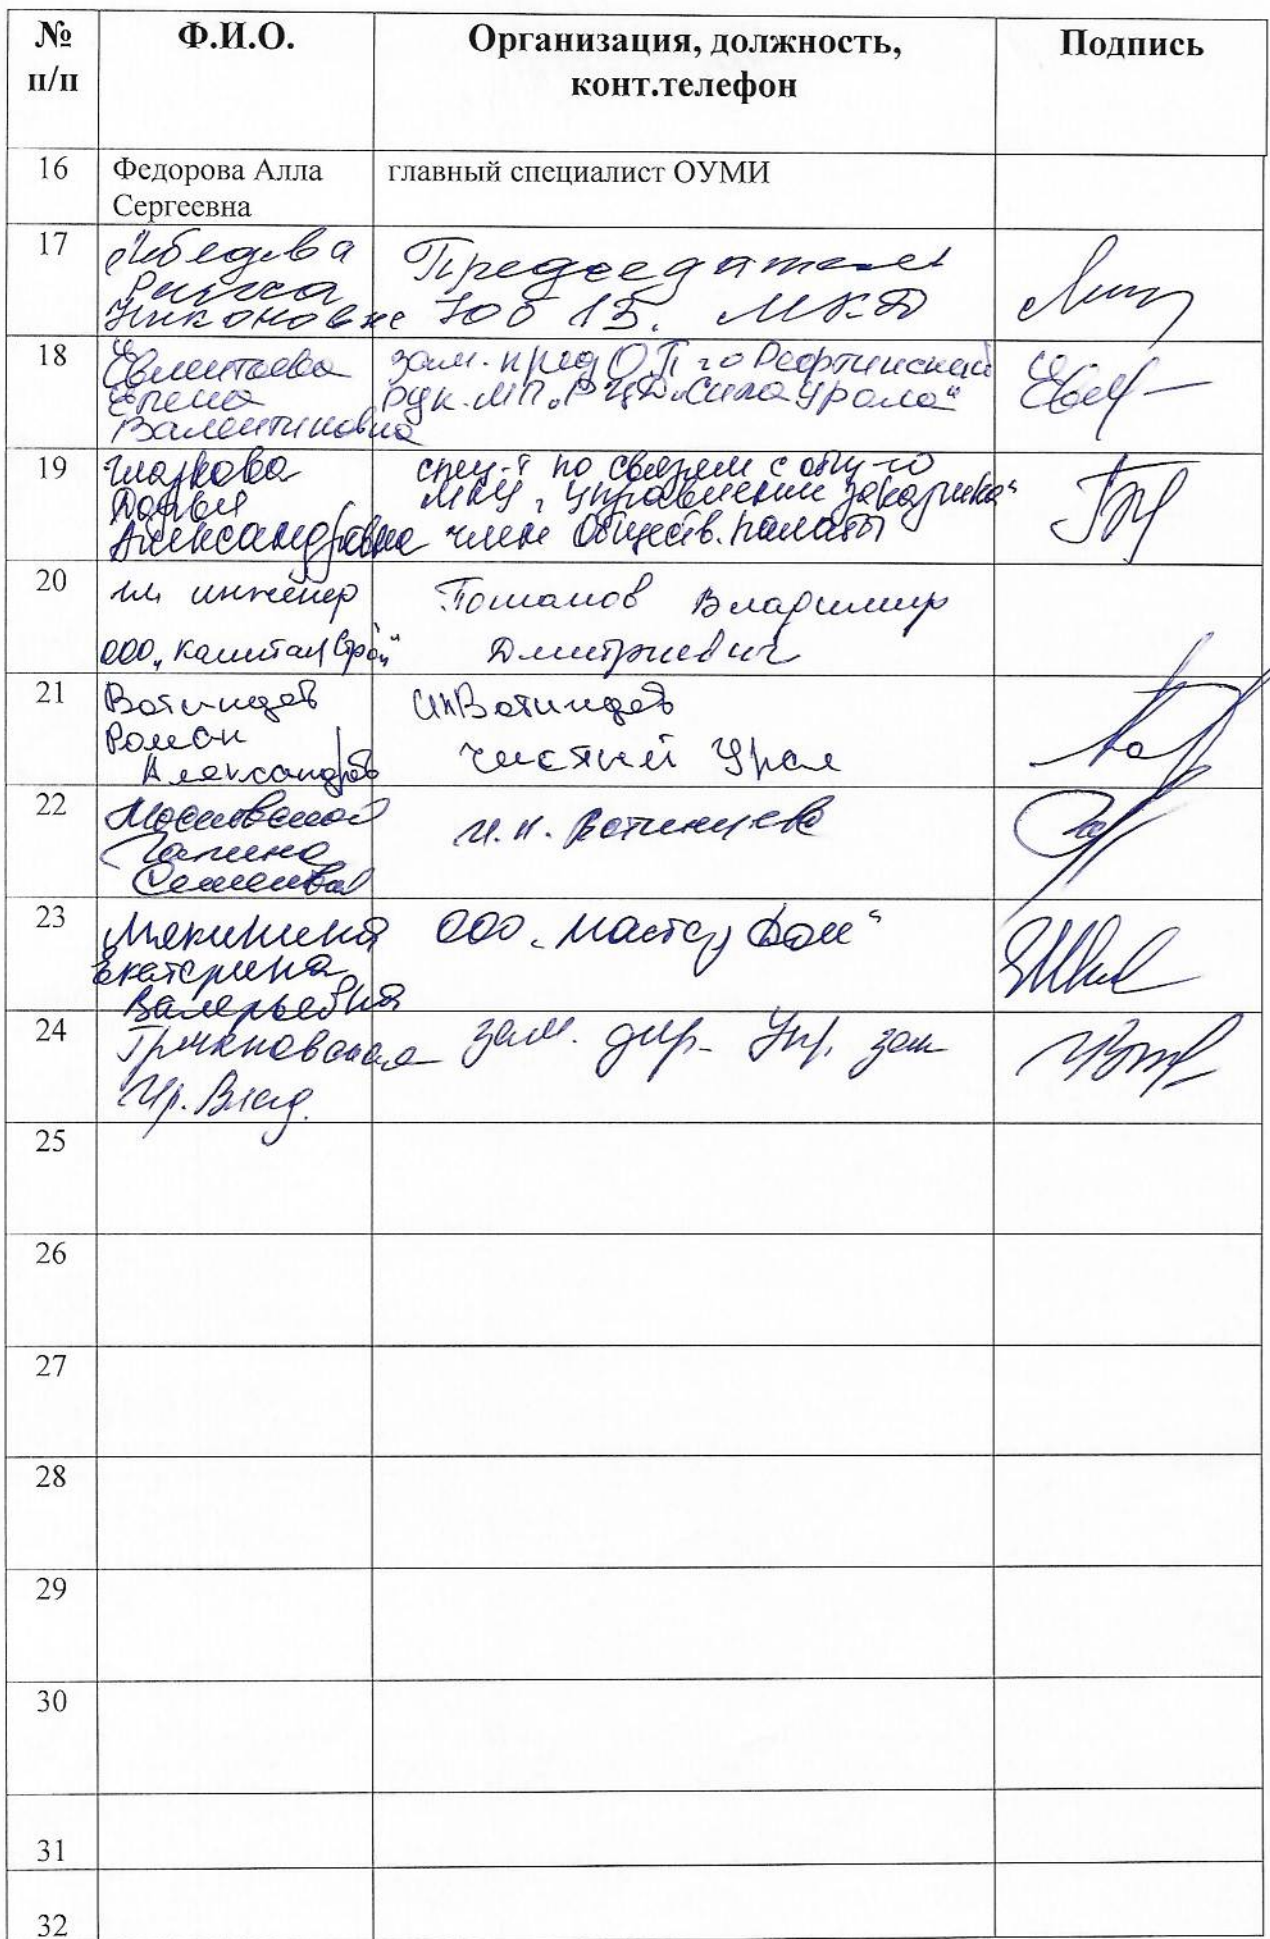 № п/п
Ф.И.О.
Организация, должность,
конт.телефон
Подпись
16
Федорова Алла
Сергеевна
главный специалист ОУМИ
17
Лебедева
Раиса
Никоновна
Председатель
Юб 15. МКД
18
Елена
Валентиновна
зам. пред ОП го Рефтинский
рук. МП „РЦД „Сила Урала“
19
Дарья
Александровна
спец-т по связям с общ-ю
МКУ „Управление заказчика“
член Обществ. палаты
20
гл инженер
ООО „КапиталСтрой“
Владимир
Дмитриевич
21
Вотинцев
Роман
Александров
ИП Вотинцев
Чистый Урал
22
Галина
Семеновна
И.п. Вотинцева
23
Мякинина
Екатерина
Валерьевна
ООО „Мастер Дом“
24
Ир. Влад.
зам. дир. Упр. зак
25
26
27
28
29
30
31
32